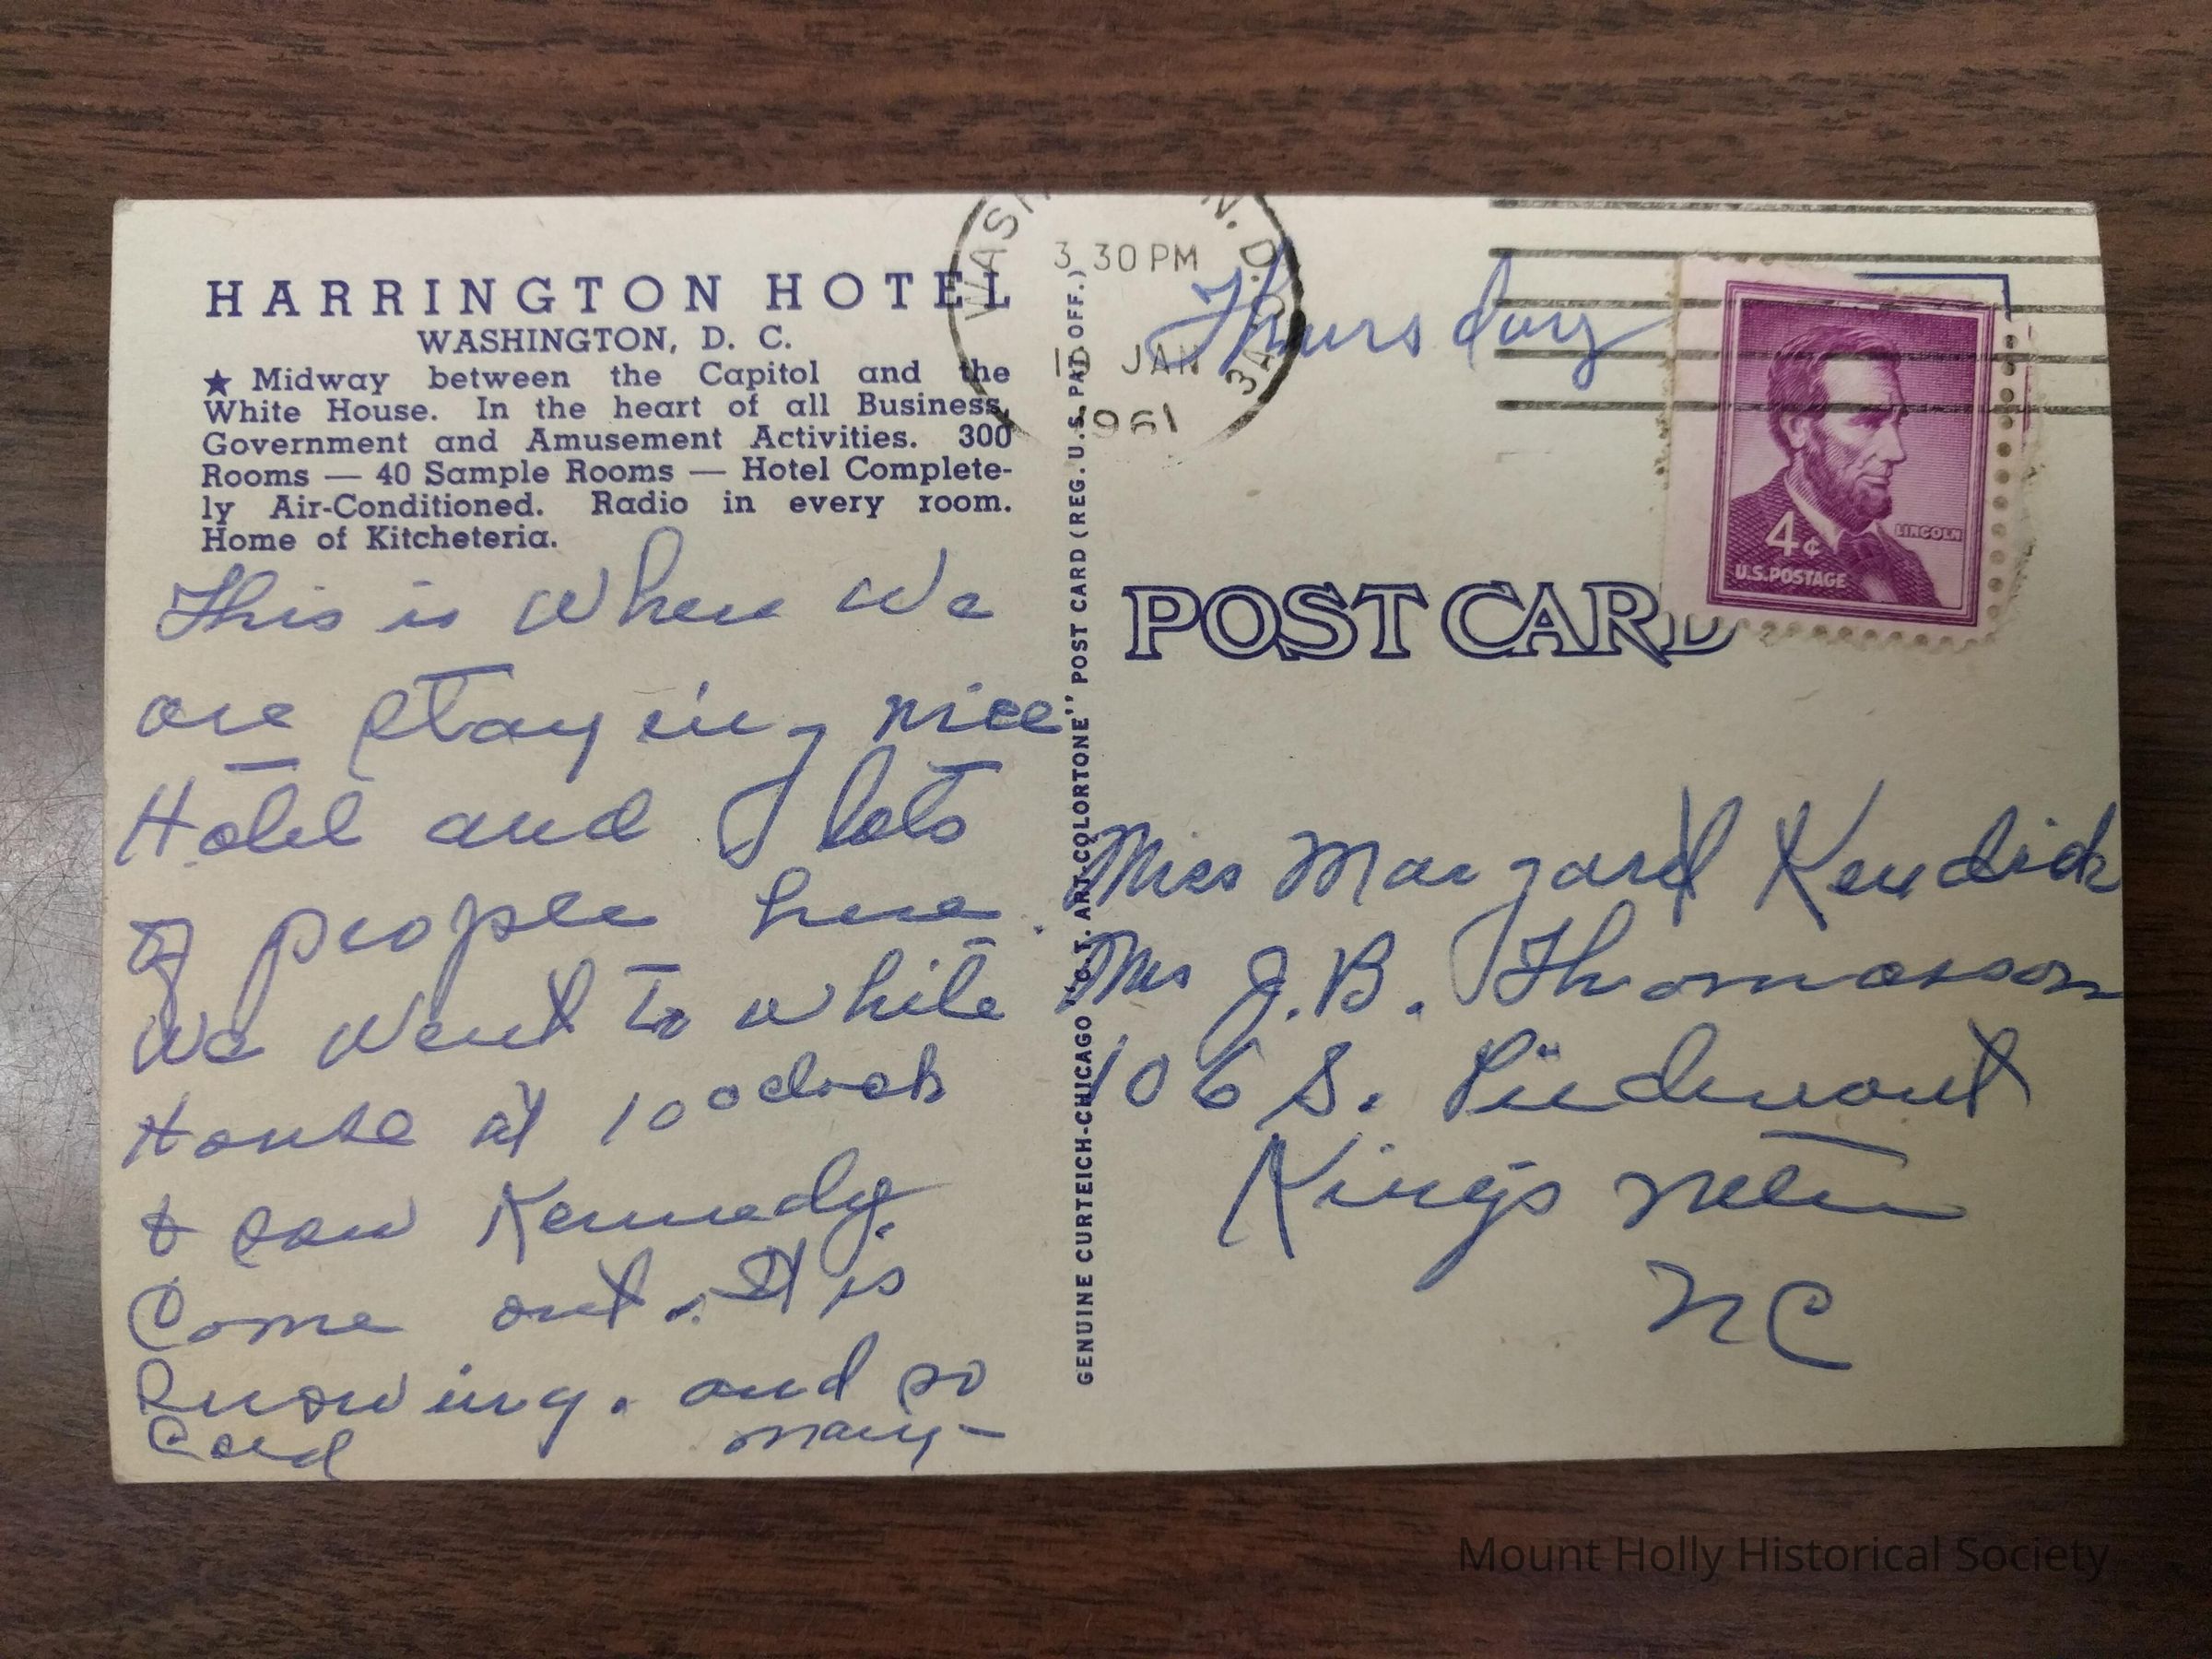 HARRINGTON HOTEL
WASHINGTON, D. C.
★ Midway between the Capitol and the
White House. In the heart of all Business,
Government and Amusement Activities. 300
Rooms — 40 Sample Rooms — Hotel Complete-
ly Air-Conditioned. Radio in every room.
Home of Kitcheteria.
This is where we
are staying nice
Hotel and lots
of people here.
We went to white
House at 10 oclock
& saw Kennedy.
Come out. It is
Snowing. and so
Cold many-
GENUINE CURTEICH-CHICAGO "C.T. ART-COLORTONE" POST CARD (REG. U.S. PAT. OFF.)
3 30 PM
JAN
1961
Thursday
LINCOLN
4¢
U.S. POSTAGE
POST CARD
Miss Margard Kendick
Mrs J.B. Thomasson
106 S. Piedmont
Kings Mtn
NC
Mount Holly Historical Society